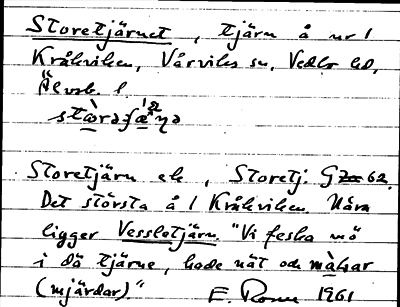 Storetjärnet, tjärn å nr 1
Kråkviken, Vårviks sn, Vedbo hd,
Älvsb. l.
Storetjärn ek, Storetj. G 62.
Det största å 1 Kråkviken. Nära
ligger Vesslotjärn. "Vi feska mö
i dä tjärne, hade nät och
(mjärdar)." E. 1961